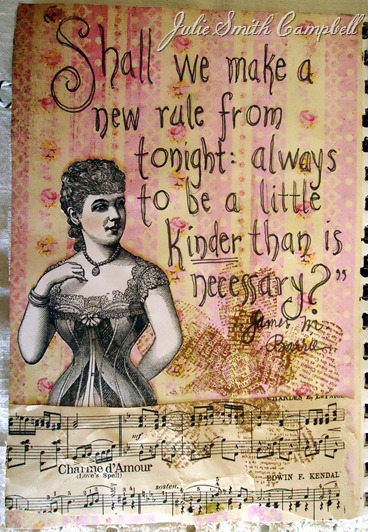 Julie Smith Campbell
Shall we make a
new rule from
tonight: always
to be a little
kinder than is
necessary?"
James M.
Barrie
mf
Charme d'Amour
(Love's Spell)
EDWIN F. KENDAL
sosten.